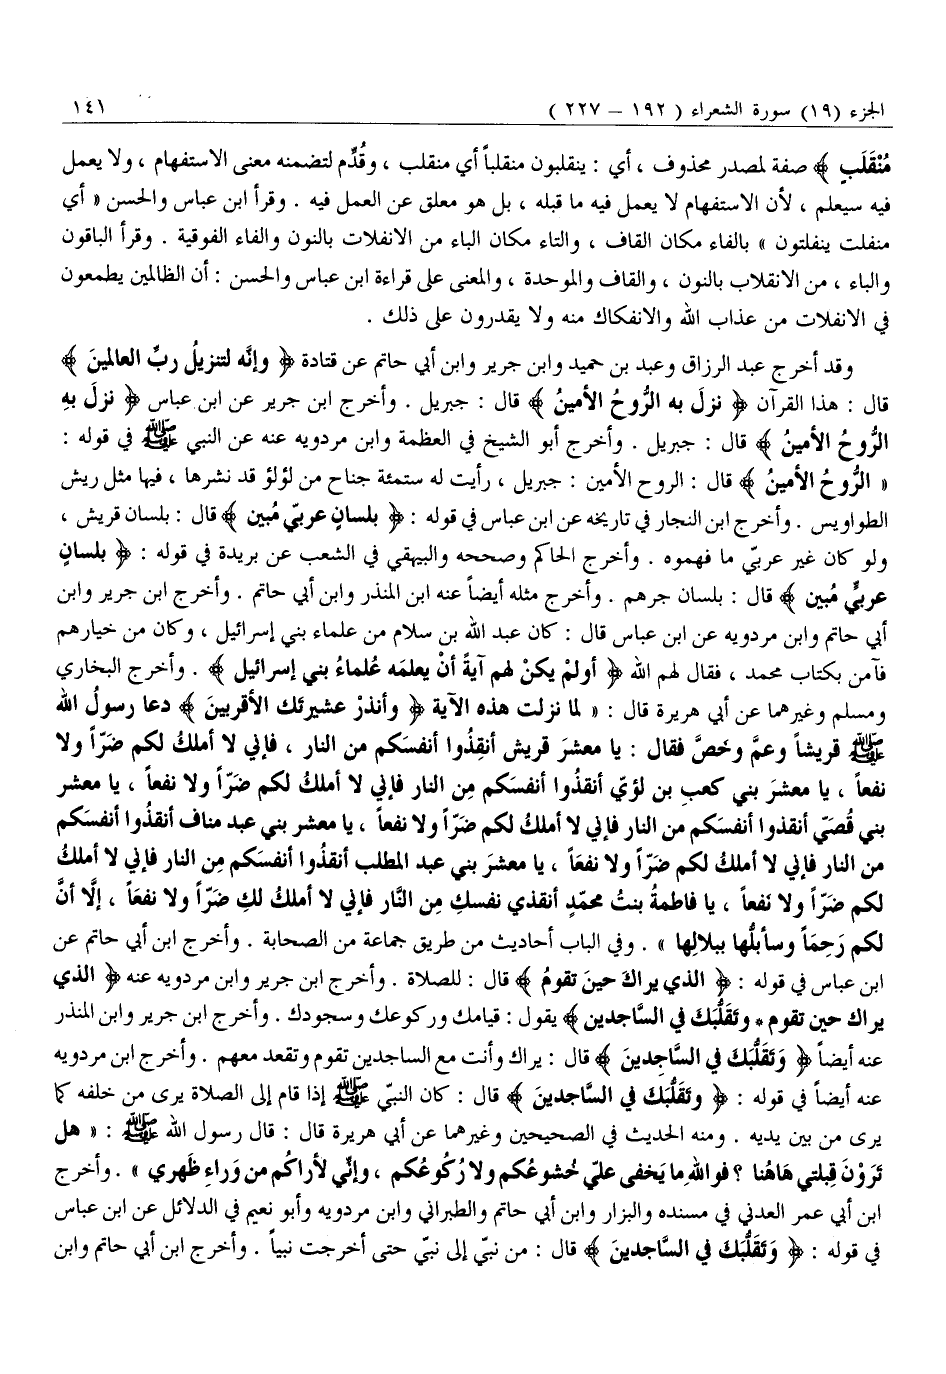 الجزء (١٩) سورة الشعراء ( ١٩٢ – ٢٢٧ ) ١٤١
مُنْقَلَبٍ ﴾ صفة لمصدر محذوف ، أي : ينقلبون منقلباً أي منقلب ، وقُدِّم لتضمنه معنى الاستفهام ، ولا يعمل
فيه سيعلم ، لأن الاستفهام لا يعمل فيه ما قبله ، بل هو معلق عن العمل فيه . وقرأ ابن عباس والحسن « أي
منفلت ينفلتون » بالفاء مكان القاف ، والتاء مكان الباء من الانفلات بالنون والفاء الفوقية . وقرأ الباقون
والباء ، من الانقلاب بالنون ، والقاف والموحدة ، والمعنى على قراءة ابن عباس والحسن : أن الظالمين يطمعون
في الانفلات من عذاب الله والانفكاك منه ولا يقدرون على ذلك .
وقد أخرج عبد الرزاق وعبد بن حميد وابن جرير وابن أبي حاتم عن قتادة ﴿ وإنَّه لتنزيلُ ربِّ العالمينَ ﴾
قال : هذا القرآن ﴿ نزلَ به الرُّوح الأمينُ ﴾ قال : جبريل . وأخرج ابن جرير عن ابن عباس ﴿ نزل بِهِ
الرُّوحُ الأمينُ ﴾ قال : جبريل . وأخرج أبو الشيخ في العظمة وابن مردويه عنه عن النبي ﷺ في قوله :
« الرُّوحُ الأمينُ ﴾ قال : الروح الأمين : جبريل ، رأيت له ستمئة جناح من لؤلؤ قد نشرها ، فيها مثل ريش
الطواويس . وأخرج ابن النجار في تاريخه عن ابن عباس في قوله : ﴿ بلسانٍ عربيّ مُبين ﴾ قال : بلسان قريش ،
ولو كان غير عربيّ ما فهموه . وأخرج الحاكم وصححه والبيهقي في الشعب عن بريدة في قوله : ﴿ بلسانٍ
عربيٍّ مُبين ﴾ قال : بلسان جرهم . وأخرج مثله أيضاً عنه ابن المنذر وابن أبي حاتم . وأخرج ابن جرير وابن
أبي حاتم وابن مردويه عن ابن عباس قال : كان عبد الله بن سلام من علماء بني إسرائيل ، وكان من خيارهم
فآمن بكتاب محمد ، فقال لهم الله ﴿ أولمْ يكنْ لهم آيةً أنْ يعلمَه عُلماءُ بني إسرائيل ﴾ . وأخرج البخاري
ومسلم وغيرهما عن أبي هريرة قال : « لما نزلت هذه الآية ﴿ وأنذرْ عشيرتَك الأقربينَ ﴾ دعا رسولُ الله
ﷺ قريشاً وعمَّ وخصَّ فقال : يا معشرَ قريش أنقِذُوا أنفسَكم من النار ، فإني لا أملكُ لكم ضَرّاً ولا
نفعاً ، يا معشرَ بني كعبِ بن لؤيّ أنقذُوا أنفسَكم مِن النار فإني لا أملكُ لكم ضَرّاً ولا نفعاً ، يا معشر
بني قُصَيّ أنقذوا أنفسَكم من النار فإني لا أملكُ لكم ضَرّاً ولا نفعاً ، يا معشر بني عبد مناف أنقذُوا أنفسَكم
من النار فإني لا أملكُ لكم ضَرّاً ولا نفعَاً ، يا معشرَ بني عبد المطلب أنقذُوا أنفسَكم مِن النار فإني لا أملكُ
لكم ضَرّاً ولا نفعاً ، يا فاطمةُ بنتُ محمّدٍ أنقذي نفسكِ مِن النَّار فإني لا أملكُ لكِ ضَرّاً ولا نفعَاً ، إلَّا أنَّ
لكم رَحِمَاً وسأبلُّها ببلالِها » . وفي الباب أحاديث من طريق جماعة من الصحابة . وأخرج ابن أبي حاتم عن
ابن عباس في قوله : ﴿ الذي يراكَ حينَ تقومُ ﴾ قال : للصلاة . وأخرج ابن جرير وابن مردويه عنه ﴿ الذي
يراك حين تقوم * وتَقَلُّبَكَ في السَّاجدين ﴾ يقول : قيامك وركوعك وسجودك . وأخرج ابن جرير وابن المنذر
عنه أيضاً ﴿ وَتَقَلُّبَكَ في السَّاجِدينَ ﴾ قال : يراك وأنت مع الساجدين تقوم وتقعد معهم . وأخرج ابن مردويه
عنه أيضاً في قوله : ﴿ وتَقَلُّبَكَ في السَّاجدينَ ﴾ قال : كان النبيّ ﷺ إذا قام إلى الصلاة يرى من خلفه كما
يرى من بين يديه . ومنه الحديث في الصحيحين وغيرهما عن أبي هريرة قال : قال رسول الله ﷺ : « هل
تَرَوْنَ قِبلتي هَاهُنا ؟ فوالله ما يَخفى عليّ خُشوعُكم ولا رُكُوعُكم ، وإنِّي لأراكُم من وَراءِ ظَهري » . وأخرج
ابن أبي عمر العدني في مسنده والبزار وابن أبي حاتم والطبراني وابن مردويه وأبو نعيم في الدلائل عن ابن عباس
في قوله : ﴿ وَتَقَلُّبَكَ في السَّاجِدينَ ﴾ قال : من نبيّ إلى نبيّ حتى أخرجت نبياً . وأخرج ابن أبي حاتم وابن